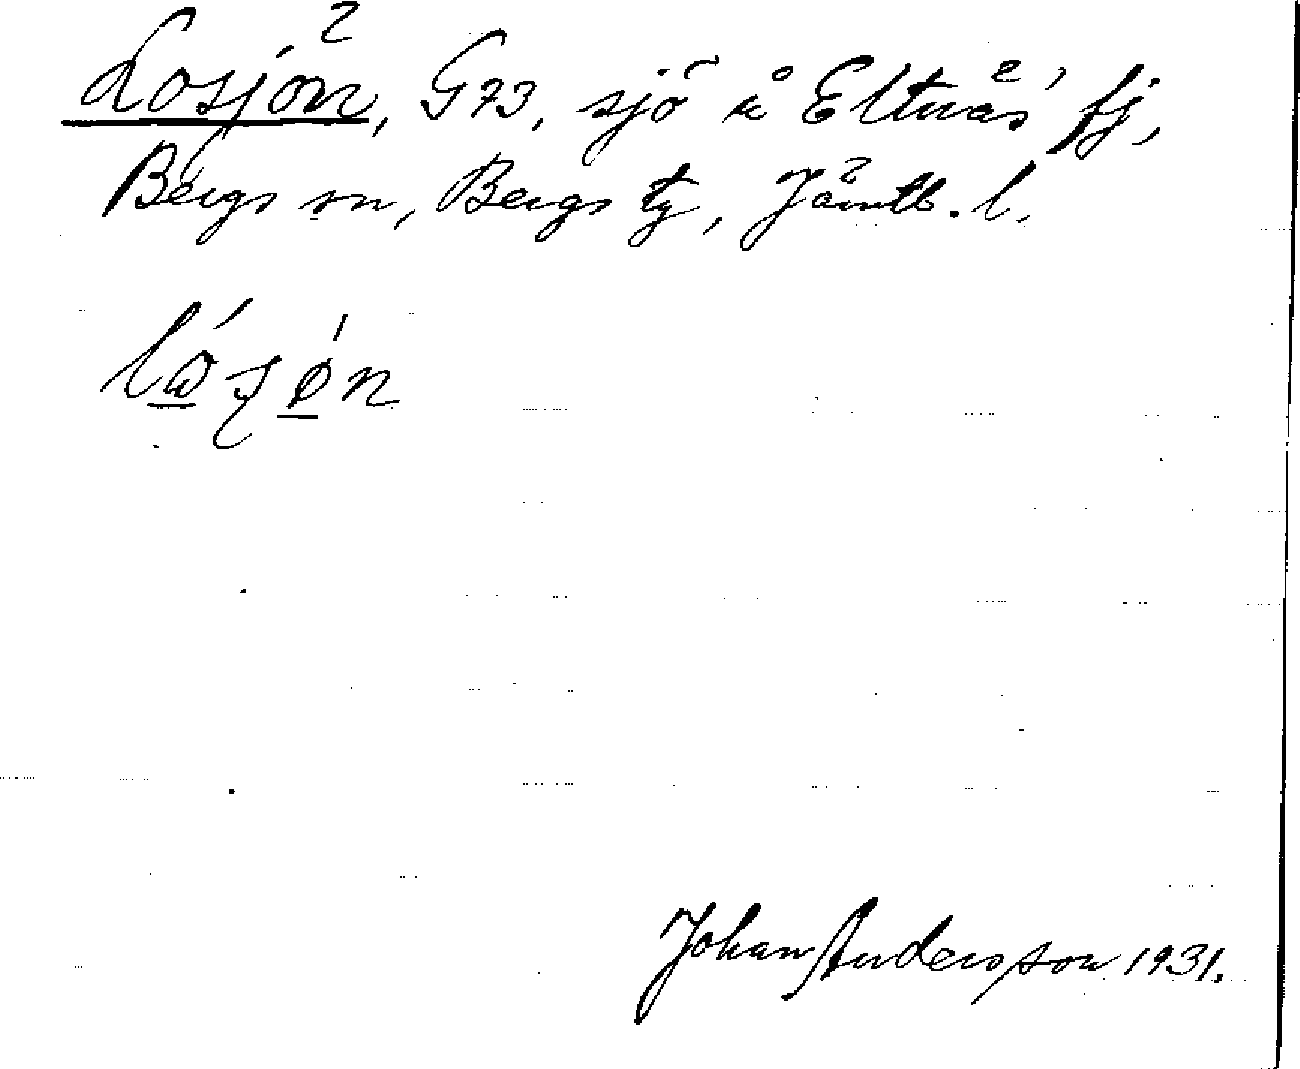 Losjön, G73, sjö å Eltnäs fj,
Bergs sn, Bergs tg, Jämtl. l.
Johan Andersson 1931.